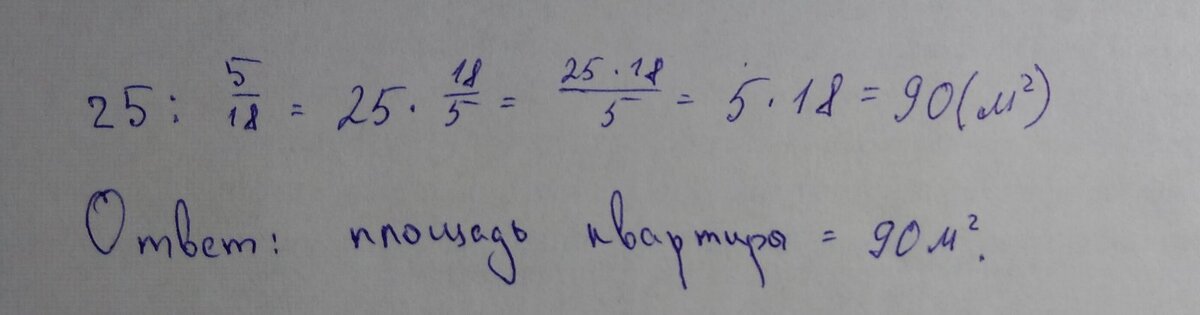 25 : 5/18 = 25 · 18/5 = 25 · 18/5 = 5 · 18 = 90 (м²)
Ответ: площадь квартиры = 90 м².